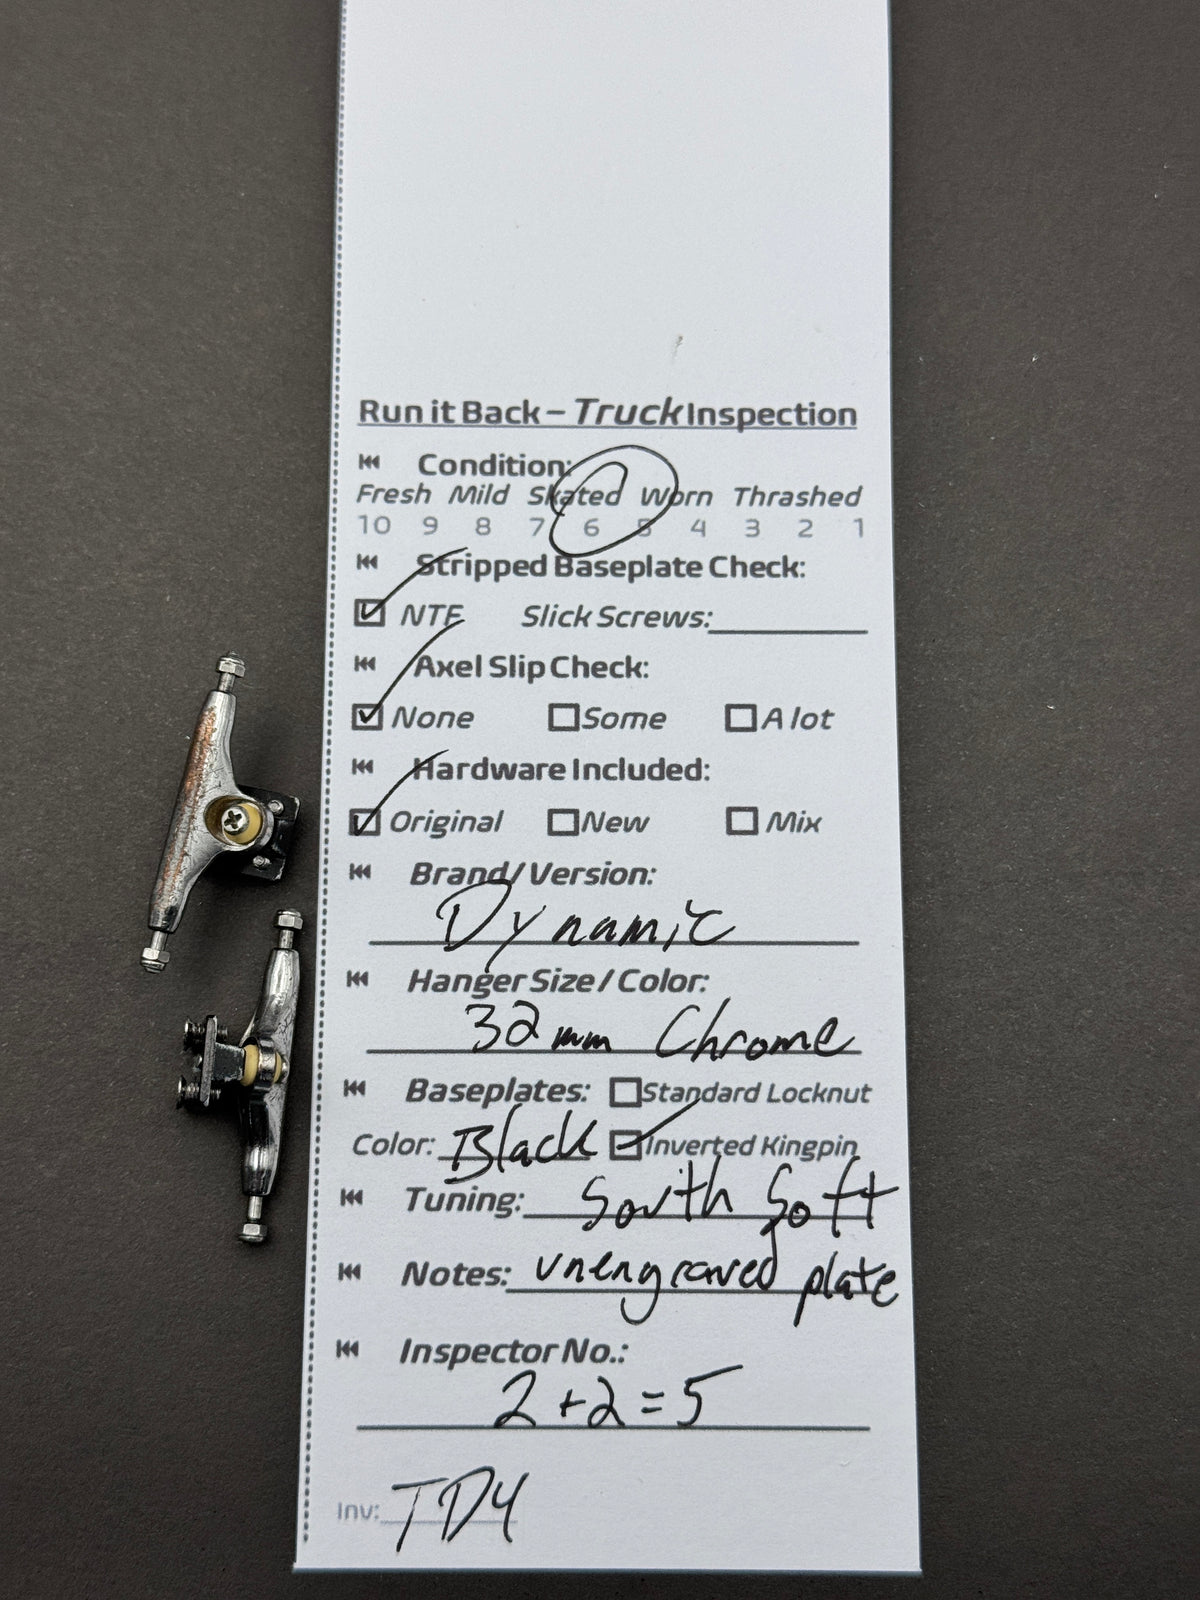 Run it Back – Truck Inspection
Condition:
Fresh Mild Skated Worn Thrashed
10 9 8 7 6 5 4 3 2 1
Stripped Baseplate Check:
NTF Slick Screws:
Axel Slip Check:
None Some A lot
Hardware Included:
Original New Mix
Brand/Version:
Dynamic
Hanger Size/Color:
32mm Chrome
Baseplates: Standard Locknut
Color: Black Inverted Kingpin
Tuning: South Soft
Notes: unengraved plate
Inspector No.:
2+2=5
Inv: TD4